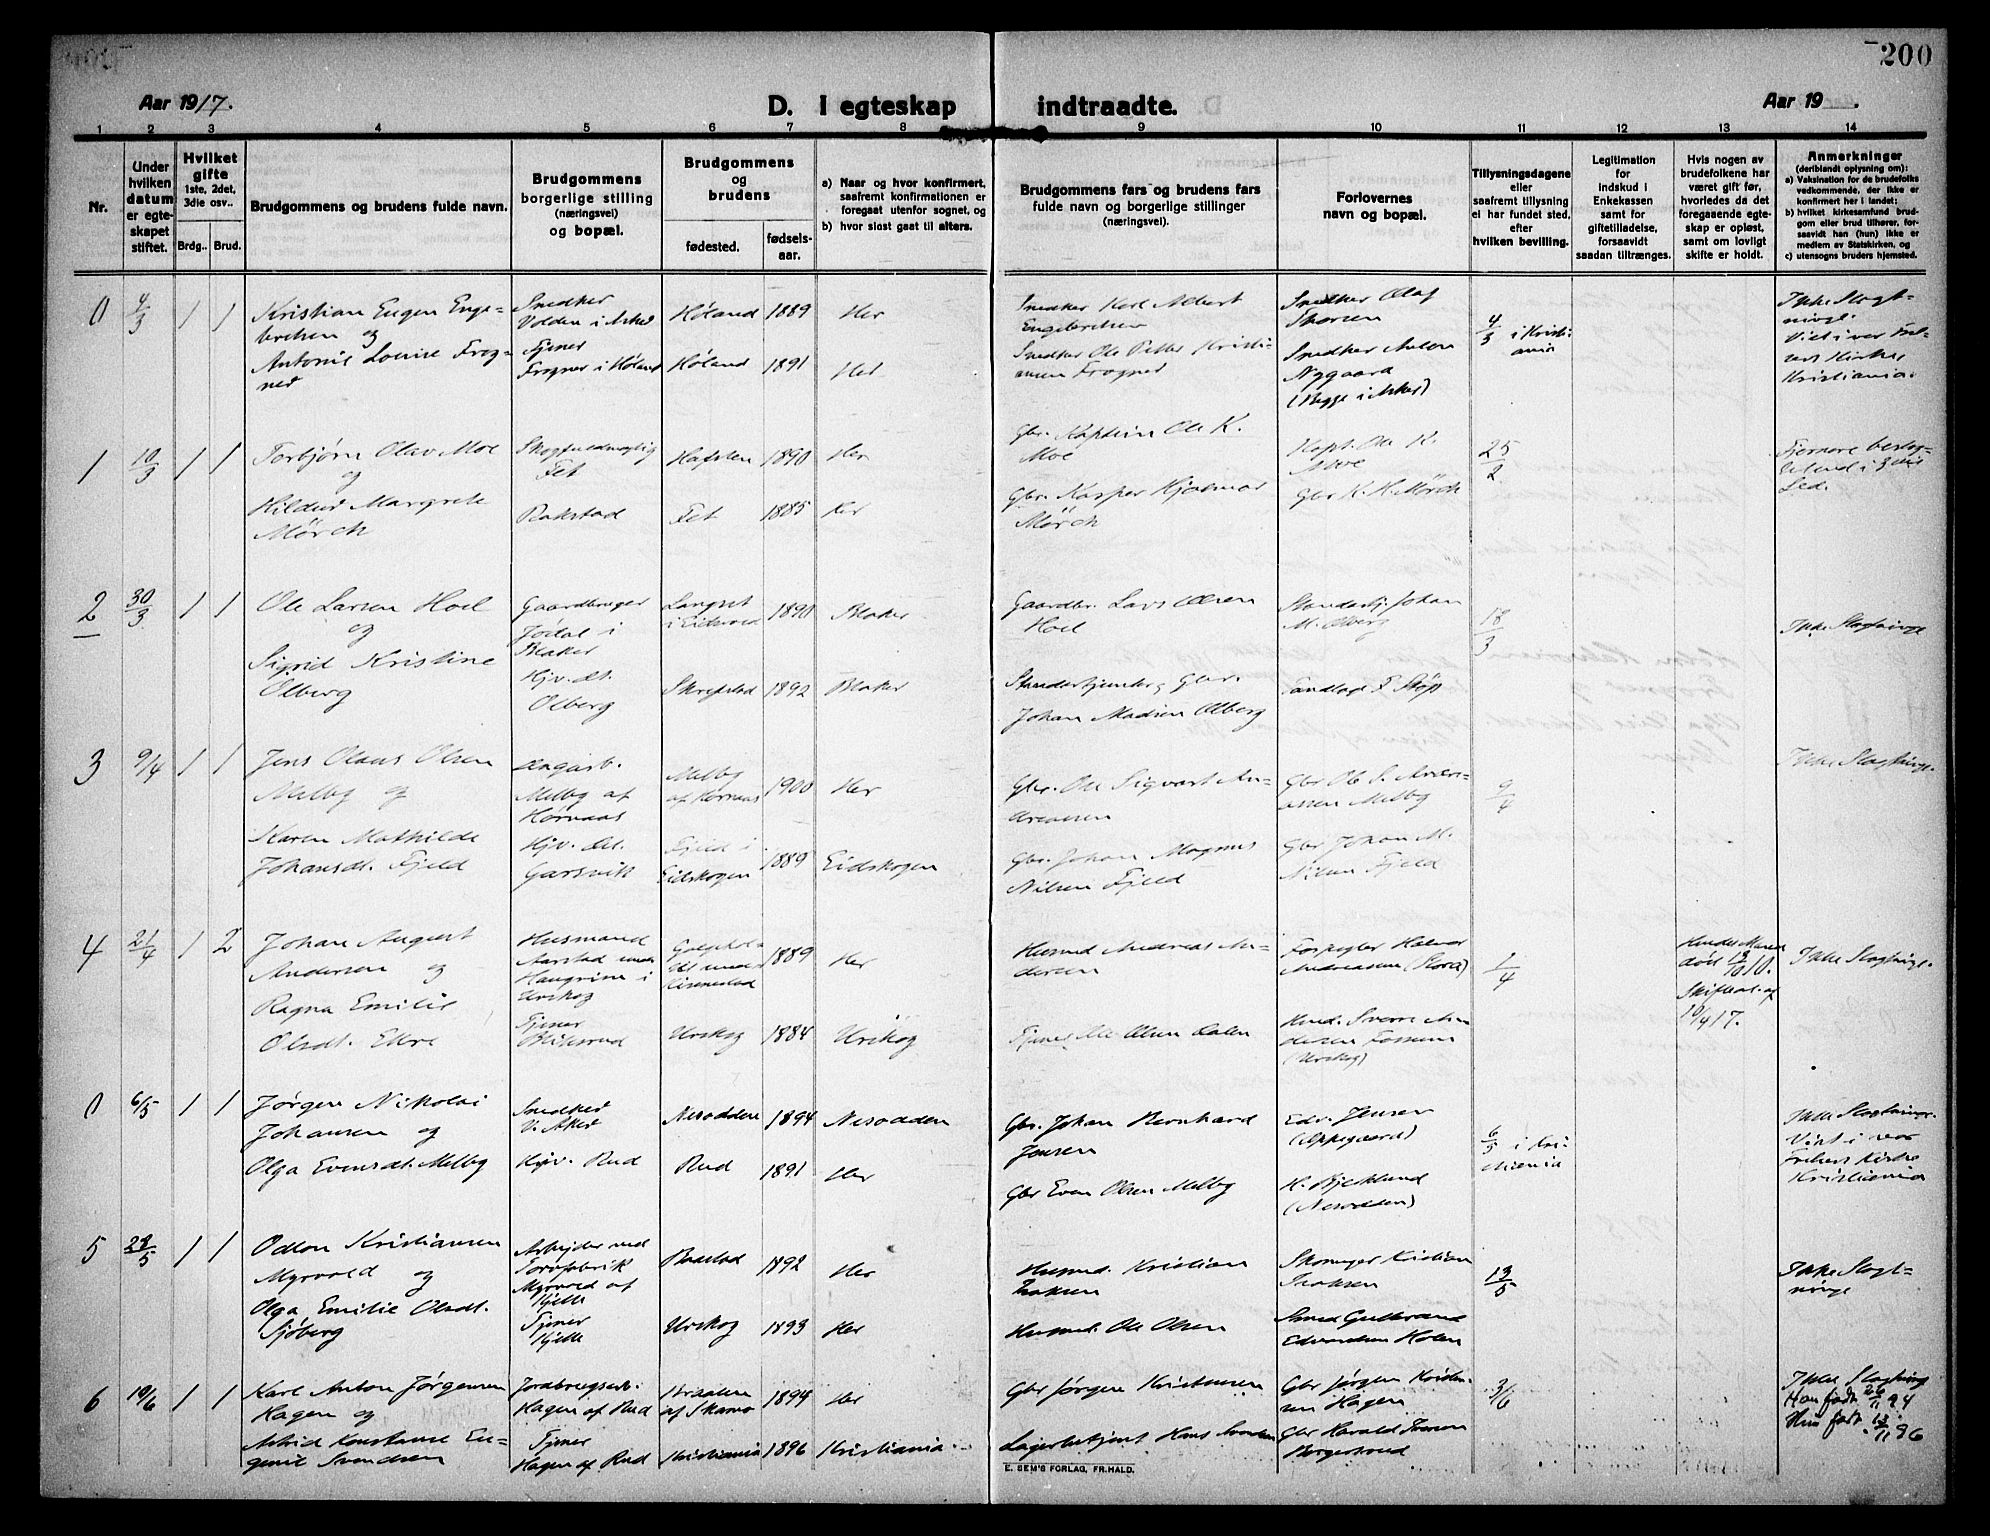 200
Aar 1917.
D. I egteskap indtraadte.
Aar 19
1 2 3 4 5 6 7 8 9 10 11 12 13 14
Nr.
Under
hvilken
datum
er egte-
skapet
stiftet.
Hvilket
gifte
1ste, 2det,
3die osv..
Brdg.. Brud.
Brudgommens og brudens fulde navn.
Brudgommens
borgerlige stilling
(næringsvei)
og bopæl.
Brudgommens
og
brudens
fødested.
fødsels-
aar.
a) Naar og hvor konfirmert,
saafremt konfirmationen er
foregaat utenfor sognet, og
b) hvor sidst gaat til alters.
Brudgommens fars og brudens fars
fulde navn og borgerlige stillinger
(næringsvei).
Forlovernes
navn og bopæl.
Tillysningsdagene
eller
saafremt tillysning
ei har fundet sted,
efter
hvilken bevilling.
Legitimation
for
indskud i
Enkekassen
samt for
giftetilladelse,
forsaavidt
saadan tiltrænges.
Hvis nogen av
brudefolkene har
været gift før,
hvorledes da det
foregaaende egte-
skap er opløst,
samt om lovligt
skifte er holdt.
Anmerkninger
(deriblandt oplysning om):
a) Vaksination for de brudefolks
vedkommende, der ikke er
konfirmert her i landet;
b) hvilket kirkesamfund brud-
gom eller brud tilhører, for-
saavidt han (hun) ikke er
medlem av Statskirken, og
c) utensogns bruders hjemsted.
0 4/3 1 1
Kristian Eugen Enge-
bretsen og
Antonie Louise Frog-
ner
Snedker
Volden i Asker
Tjener
Frogner i Høland
Høland 1889 Her
Høland 1891 Her
Snedker Karl Albert
Engebretsen
Snedker Ole Petter Kristi-
ansen Frogner
Snedker Olaf
Snedker Anton
Nygaard
(Begge i Asker)
4/3 i Kristi-
ania
Ikke Slagt-
ninge.
Viet i vor Frel-
sers Kirke
Kristiania.
1 10/3 1 1
Torbjørn Olav Moe
og
Hildur Margrete
Mörch
Fet
Rakstad
Hafsten 1890 Her
Fet 1885 Her
Gbr. Kaptein Ole K.
Moe
Gbr. Kasper Hjalmar
Mørch
Kapt. Ole K.
Moe
Gbr K. H. Mörch
25/2
Fjernere beslag-
tet end i 3die
Led.
2 30/3 1 1
Ole Larsen Hoel
og
Sigrid Kristine
Olberg
Gaardbruger
Jødal i
Blaker
Hjv. dt.
Olberg
Langset
i Eidsvold 1890 Blaker
1892 Blaker
Gaardbr. Lars Olsen
Hoel
Gbr.
Johan Madsen Olberg
Johan
M. Olberg
Landhdl F. Støp
18/3
Ikke Slagtninge
3 9/4 1 1
Jens Olaus Olsen
Melby og
Karen Mathilde
Johansdt. Fjeld
Melby af
Hornaas
Hjv. dt.
Garsvik
Melby
af Hornaas 1900 Her
Fjeld i
Eidskogen 1889 Eidskogen
Gbr. Ole Sigvart An-
dreasen
Gbr. Johan Magnus
Nilsen Fjeld
Gbr Ole S. Andre-
assen Melby
Gbr Johan M.
Nilsen Fjeld
9/4
Ikke Slagtninge.
4 21/4 1 2
Johan August
Andersen og
Ragna Emilie
Olsdt. Elkre
Husmand
Aarstad under
Haugrim i
Urskog
Tjener
1889 Her
Urskog 1884 Urskog
Husmd Andreas An-
dersen
Tjener Ole Olsen Dalen
Halvor
Andreassen
Sverre An-
dersen Fossum
(Urskog)
1/4
Hendes Mand
død 13/10 10.
Skifteat. af
10/4 17.
Ikke Slagtninge.
0 6/5 1 1
Jørgen Nikolai
Johansen og
Olga Evensdt. Melby
Snedker
V. Aker
Hjv. Rud
Nesodden 1894 Nesodden
Rud 1891 Her
Gbr. Johan Bernhard
Jensen
Gbr Even Olsen Melby
Edv. Jensen
(Oppegaard)
H. Bjeklund
(Nesodden)
6/5 i Kri-
stiania
Ikke Slagtninge.
Viet i vor
Frelsers Kirke
Kristiania
5 28/5 1 1
Odlon Kristiansen
Myrvold og
Olga Emilie Olsdt.
Sjöberg
Arbejder ved
Torvfabrik
Myrvold af
Kjelle
Tjener
Kjelle
Baastad 1892 Her
Urskog 1893 Her
Husmd. Kristian
Isaksen
Husmd. Ole Olsen
Skomager Kristian
Isaksen
Smed Gulbrand
Edvardsen Holen
13/5
Ikke Slagt-
ninge
6 10/6 1 1
Karl Anton Jørgensen
Hagen og
Astrid Konstanse Eu-
genie Svendsen
Jordbrugsarb.
Hagen af Rud
Tjener
Hagen af Rud
Braaten
af Skamo 1894 Her
Kristiania 1896 Kristiania
Gbr Jørgen Kristiansen
Lagerbetjent Hans Svendsen
Gbr Jørgen Kristian-
sen Hagen
Gbr Harald Iversen
Borgersrud
3/6
Ikke Slagtninge
Han født 26/11 94
Hun født 13/11 96
E. SEM'S FORLAG, FR.HALD.